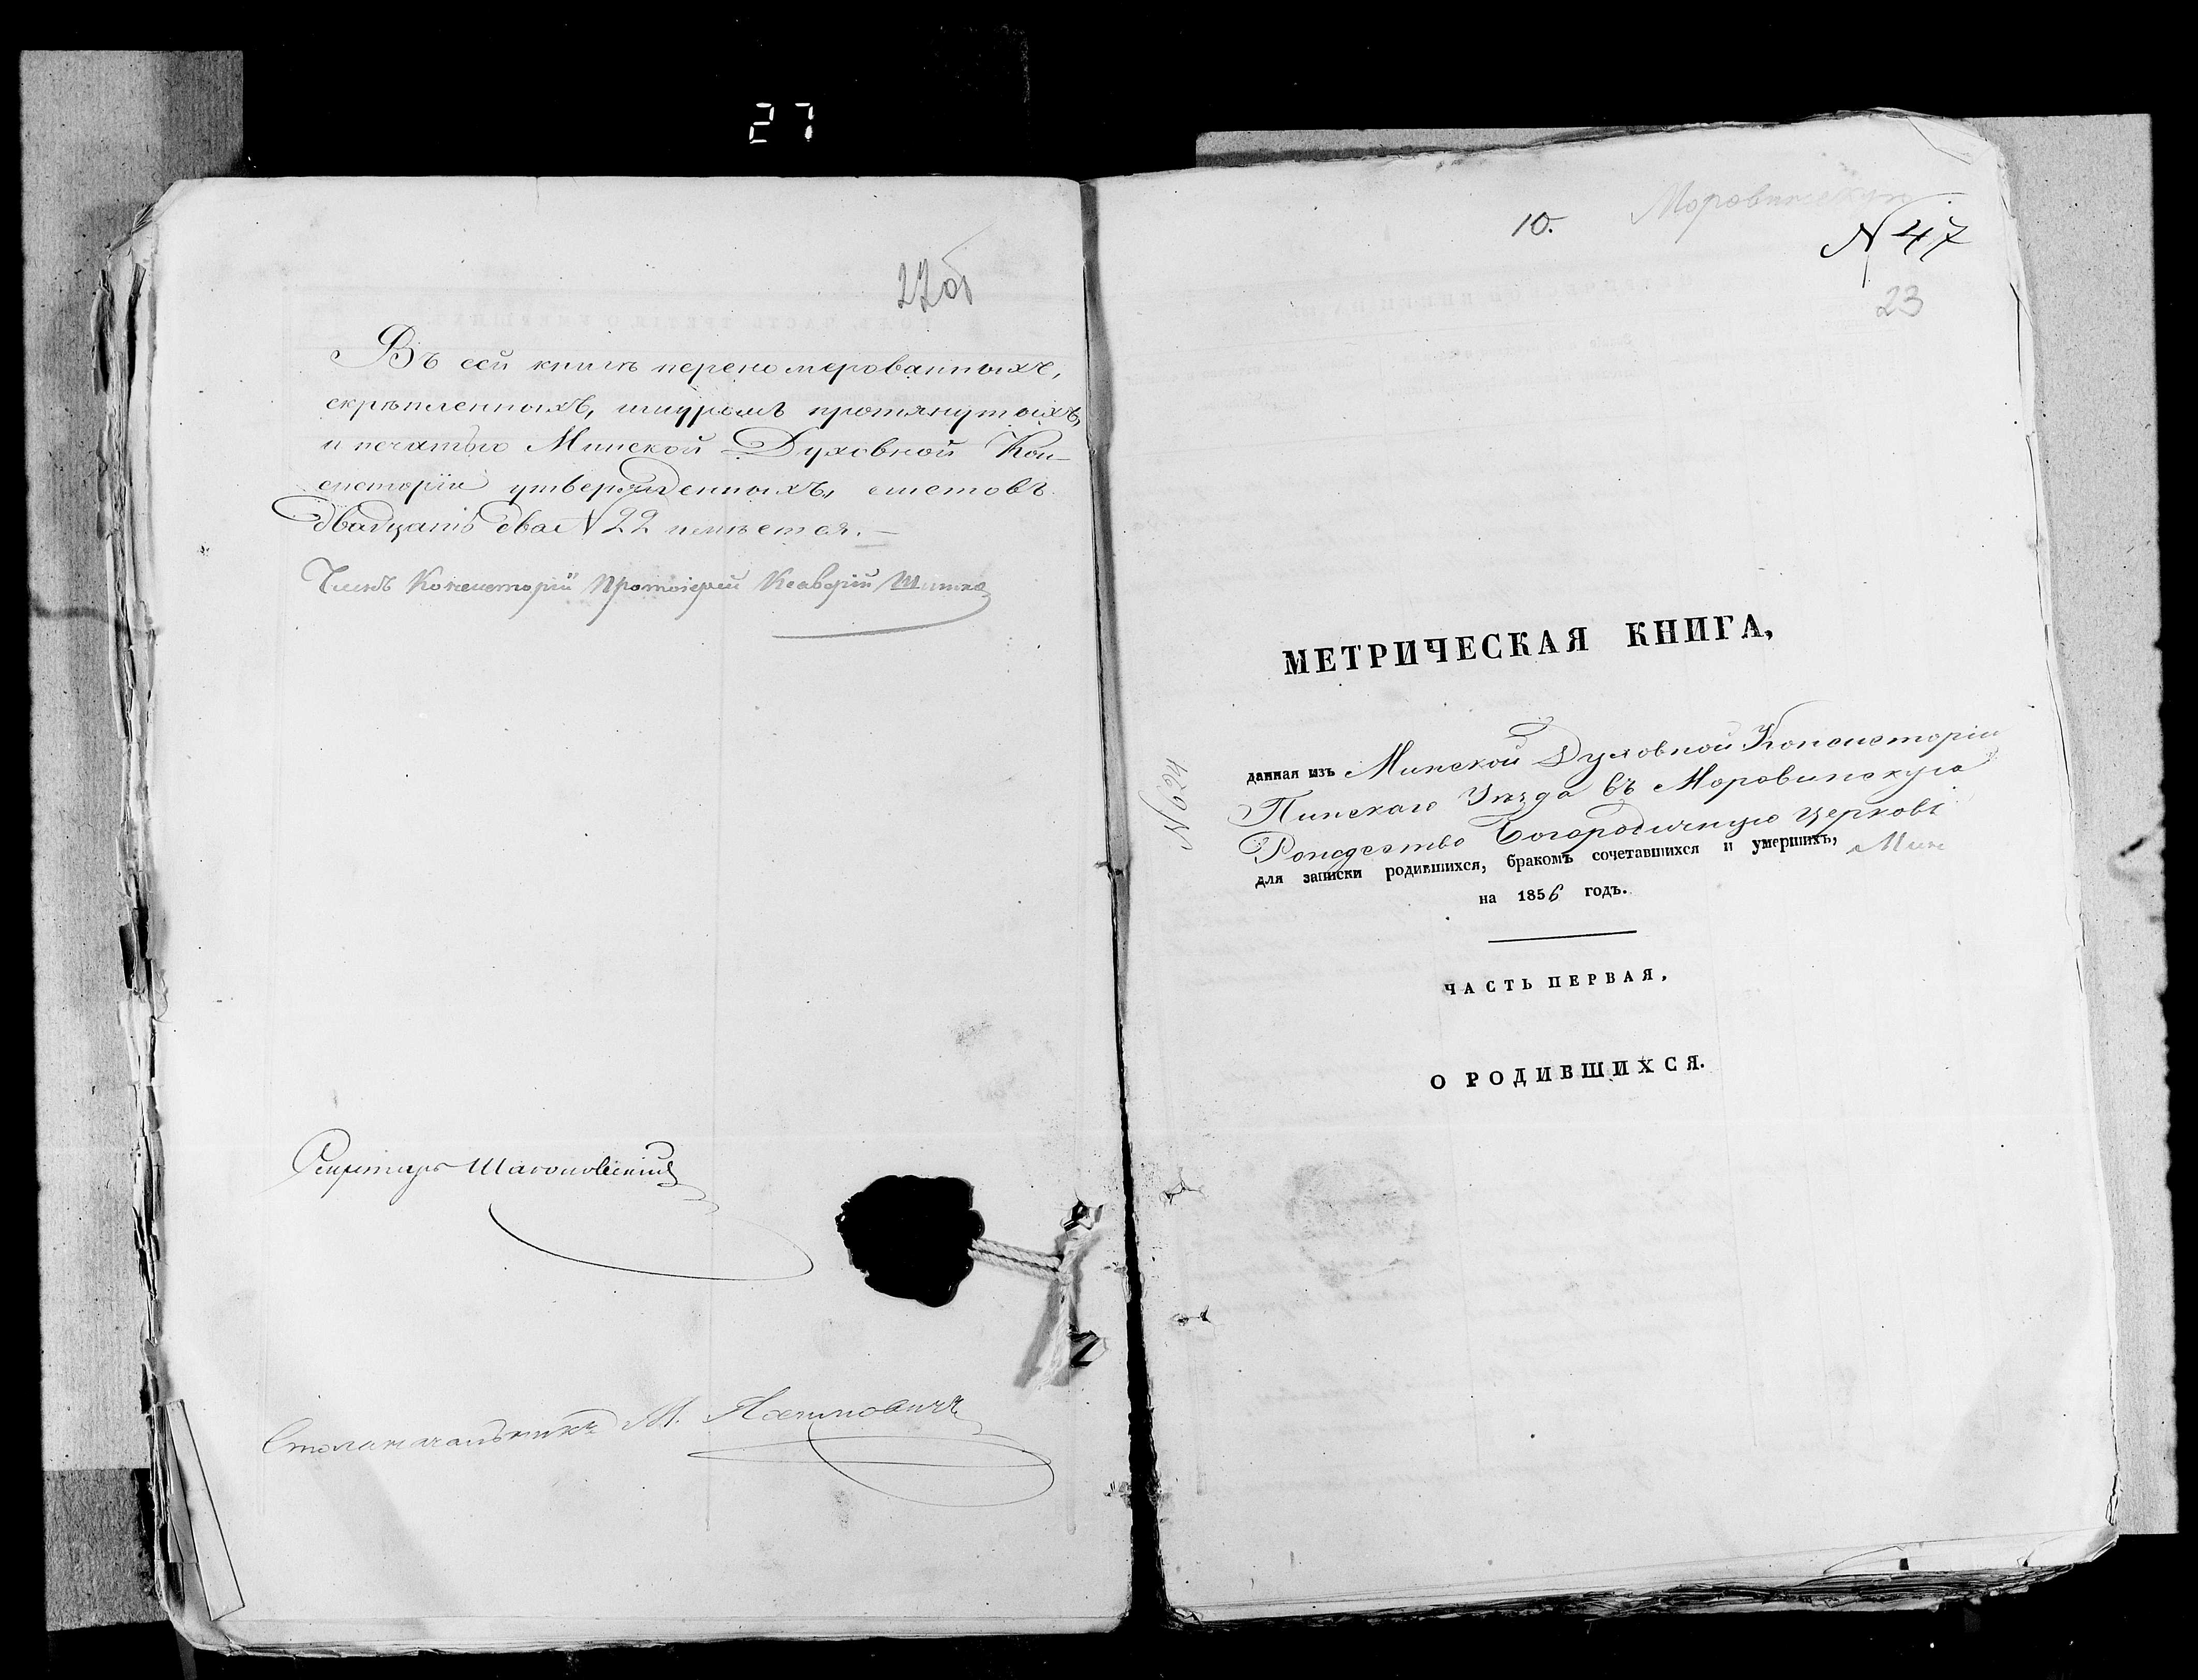 27
22 об
Въ сей книгѣ перенумерованныхъ,
скрѣпленныхъ, шнуромъ протянутыхъ,
и печатью Минской Духовной Кон-
систоріи утвержденныхъ, листовъ
двадцать два N 22 имѣется. —
Членъ Консисторіи Протоіерей Ксаверій
Секретарь
Столоначальникъ М.
10.
N 47
23
МЕТРИЧЕСКАЯ КНИГА,
данная изъ Минской Духовной Консисторіи
Пинскаго Уѣзда въ Моровинскую
Рождество Богородичную церковь
для записки родившихся, бракомъ сочетавшихся и умершихъ,
на 1856 годъ.
ЧАСТЬ ПЕРВАЯ,
О РОДИВШИХСЯ.